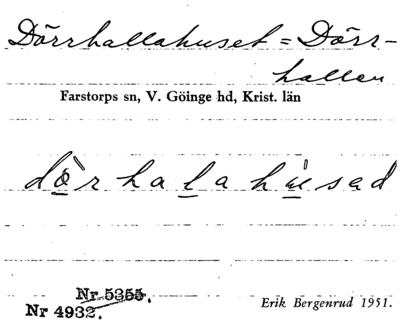 Dörrhallahuset = Dörr-
hallen
Farstorps sn, V. Göinge hd, Krist. län
dò̠rhal̠ahù̠sad
Nr 5355.
Nr 4932.
Erik Bergenrud 1951.